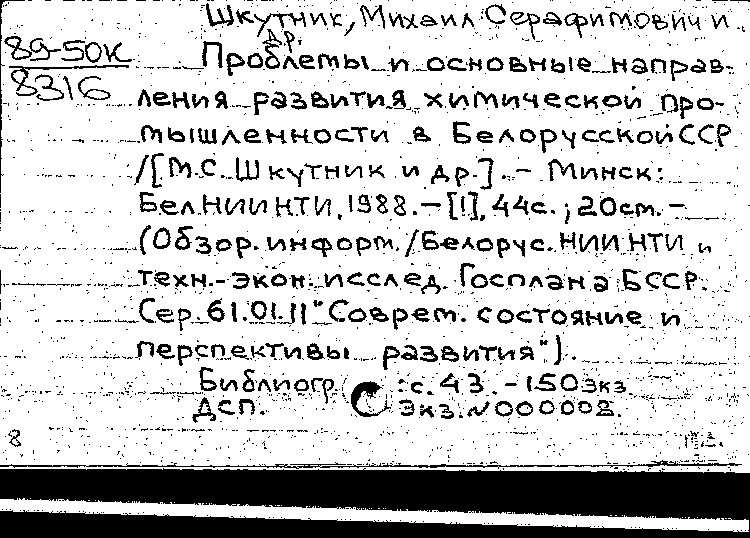 Шкутник, Михаил Серафимович и
др.
89-50к
8316
Проблемы и основные направ-
ления развития химической про-
мышленности в Белорусской ССР
/[М.С. Шкутник и др.]. - Минск:
БелНИИНТИ, 1988. - [1], 44с.; 20см. -
(Обзор. информ. /Белорус. НИИ НТИ и
техн.-экон. исслед. Госплана БССР.
Сер 61.01.11 "Соврем. состояние и
перспективы развития").
Библиогр.: с. 43. - 150экз
ДСП. Экз. №000008.
8